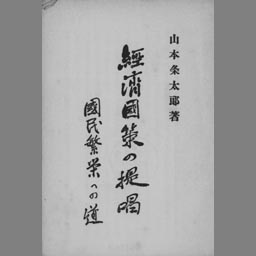 山本条太郎著
經濟國策の提唱
國民繁榮への道